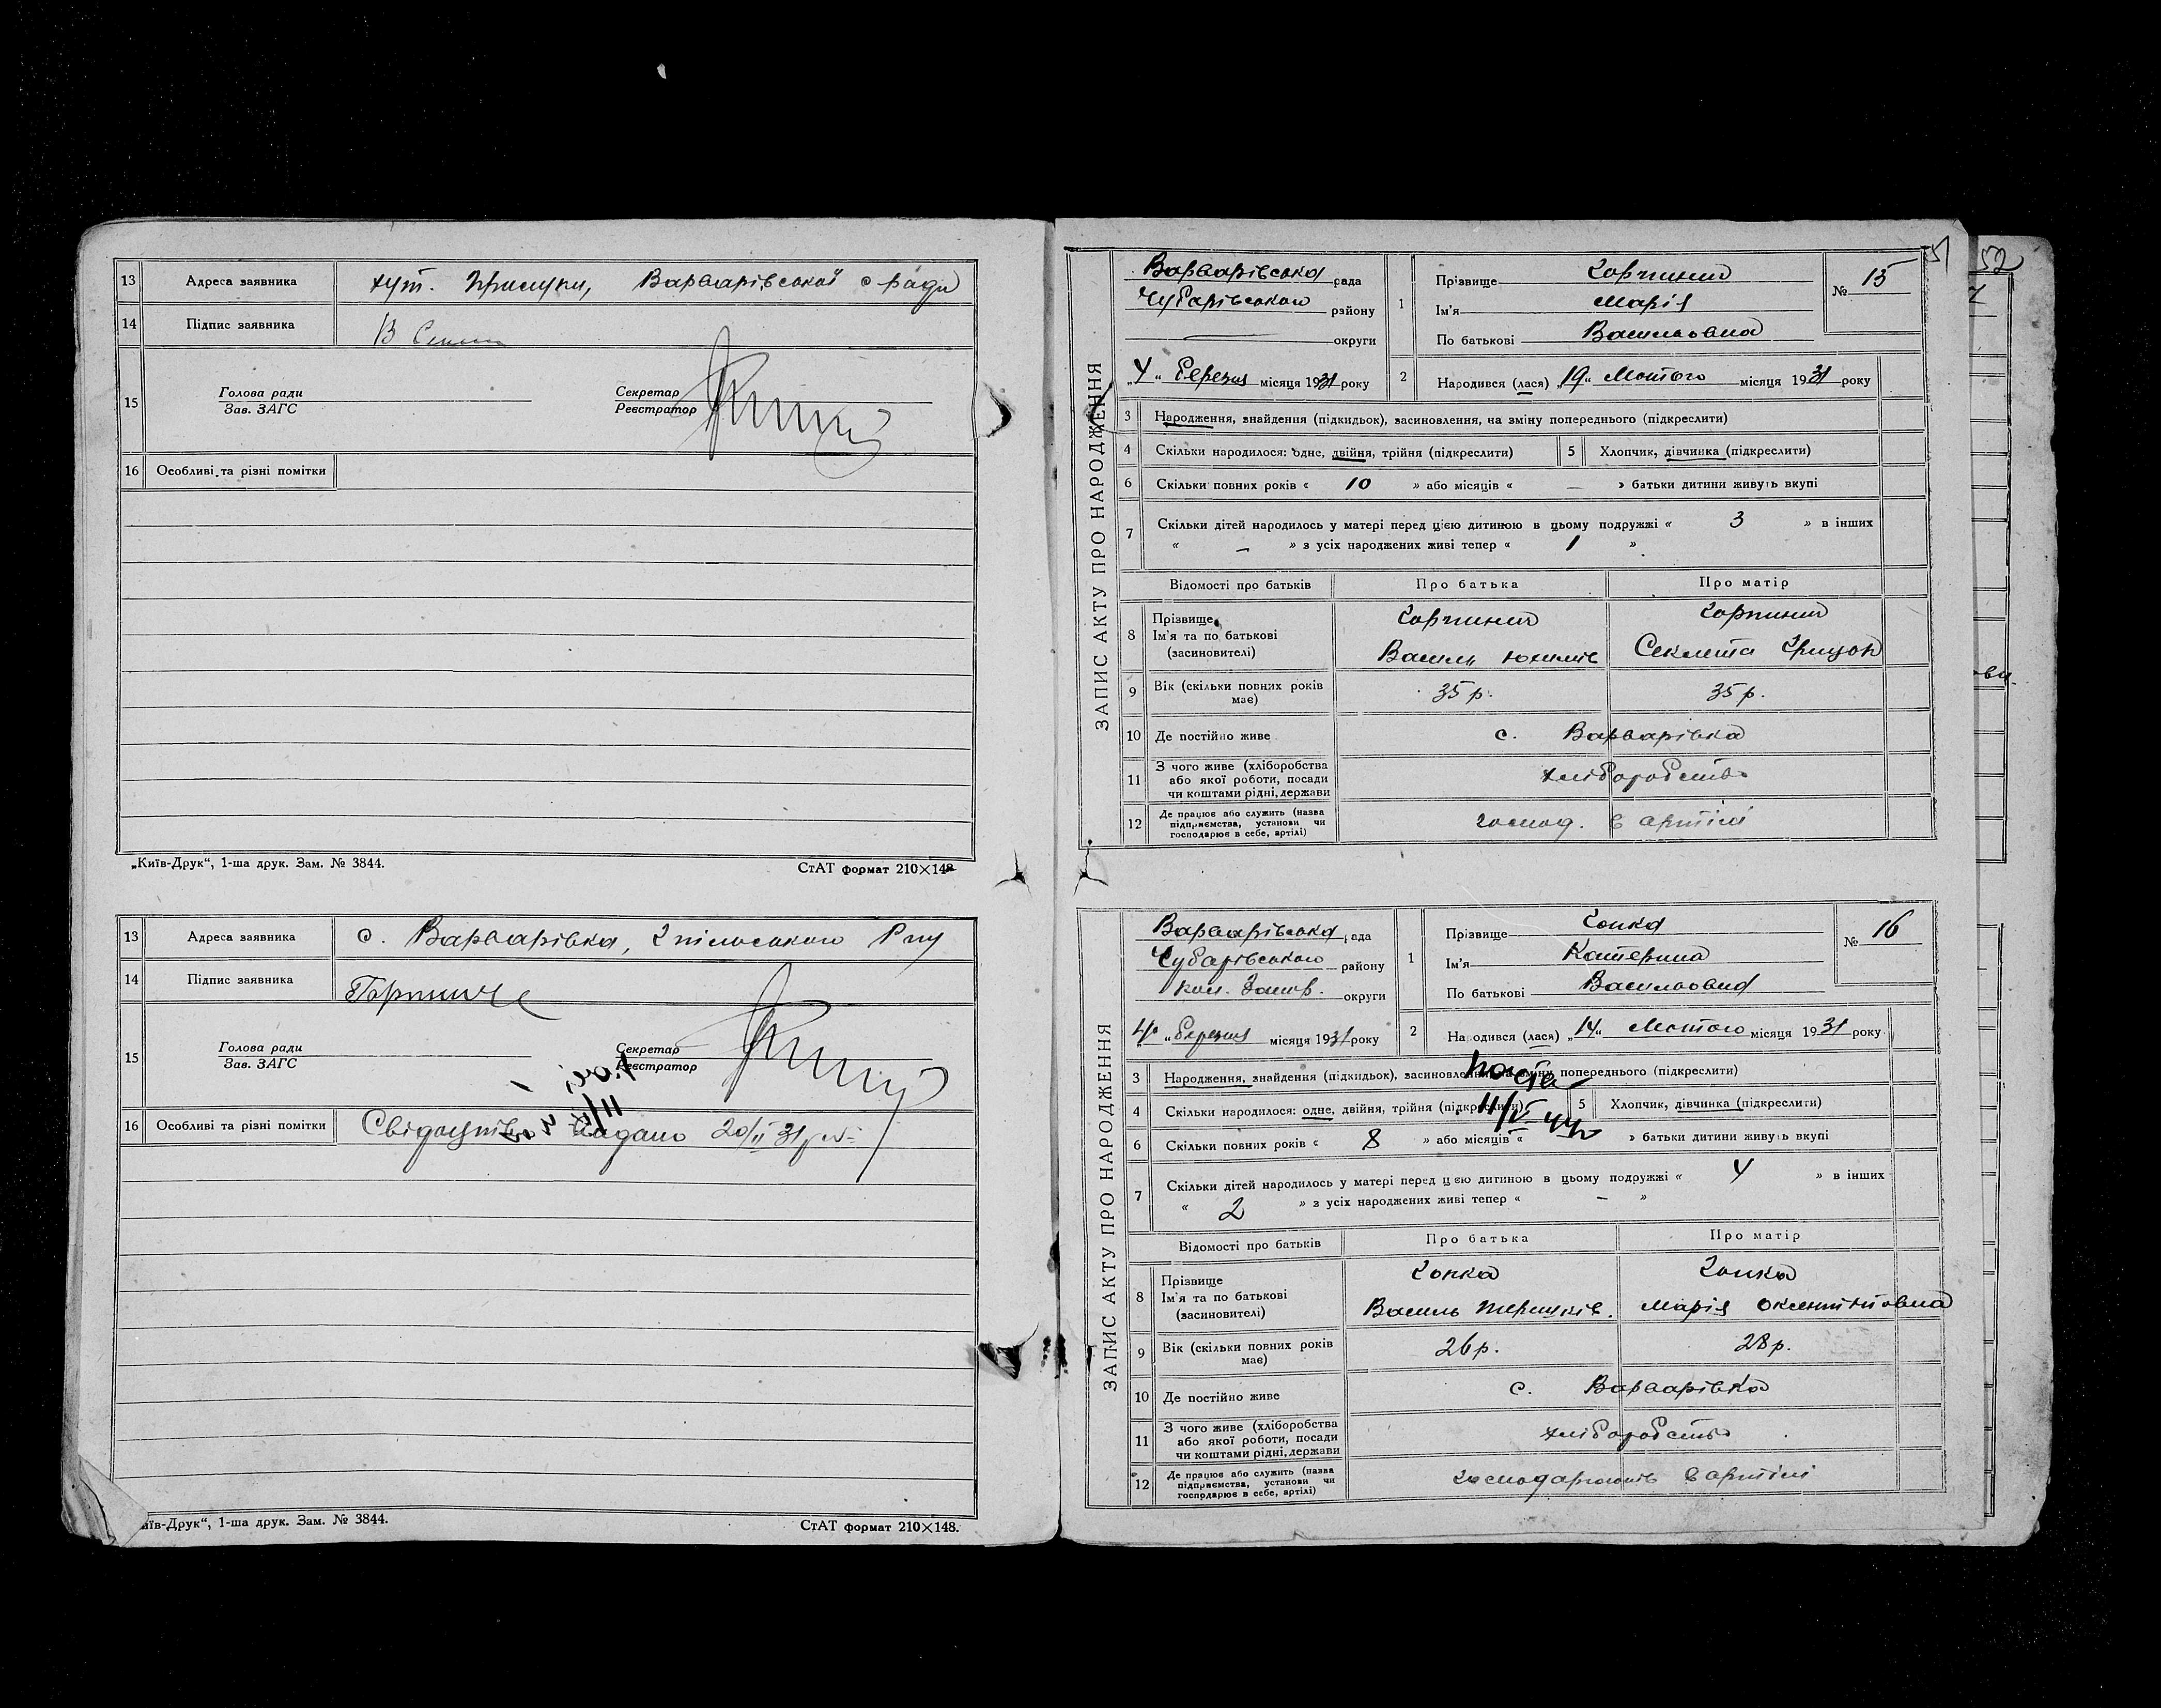 13 Адреса заявника хут. Прилуки, Варварівської с ради
14 Підпис заявника В
15 Голова ради Секретар
Зав. ЗАГС Реєстратор
16 Особливі та різні помітки
„Київ-Друк“, 1-ша друк. Зам. № 3844. СтАТ формат 210×148
13 Адреса заявника с. Варварівка,
14 Підпис заявника
15 Голова ради Секретар
Зав. ЗАГС Реєстратор
16 Особливі та різні помітки Свідоцтво видано 20/II 31 р
їв-Друк“, 1-ша друк. Зам. № 3844. СтАТ формат 210×148.
51
52
ЗАПИС АКТУ ПРО НАРОДЖЕННЯ
Варварівська рада
Чубарівського району
округи
„4“ березня місяця 1931 року
1 Прізвище
Ім'я Марія
По батькові Васильовна
№ 15
2 Народився (лася) „19“ Лютого місяця 1931 року
3 Народження, знайдення (підкидьок), засиновлення, на зміну попереднього (підкреслити)
4 Скільки народилося: одне, двійня, трійня (підкреслити) 5 Хлопчик, дівчинка (підкреслити)
6 Скільки повних років « 10 » або місяців « — » батьки дитини живуть вкупі
7 Скільки дітей народилось у матері перед цією дитиною в цьому подружжі « 3 » в інших
« — » з усіх народжених живі тепер « 1 »
Відомості про батьків Про батька Про матір
8 Прізвище
Ім'я та по батькові
(засиновителі) Василь Юхимів Секлета
9 Вік (скільки повних років має) 35 р. 35 р.
10 Де постійно живе с. Варварівка
11 З чого живе (хліборобства
або якої роботи, посади
чи коштами рідні, держави хліборобство
12 Де працює або служить (назва
підприємства, установи чи
господарює в себе, артілі) господ. в артілі
ЗАПИС АКТУ ПРО НАРОДЖЕННЯ
Варварівська рада
Чубарівського району
округи
4 „березня місяця 1931 року
1 Прізвище
Ім'я Катерина
По батькові Васильовна
№ 16
2 Народився (лася) „14“ Лютого місяця 1931 року
3 Народження, знайдення (підкидьок), засиновлення, на зміну попереднього (підкреслити)
4 Скільки народилося: одне, двійня, трійня (підкреслити) 5 Хлопчик, дівчинка (підкреслити)
11/IV 44
6 Скільки повних років « 8 » або місяців « » батьки дитини живуть вкупі
7 Скільки дітей народилось у матері перед цією дитиною в цьому подружжі « 4 » в інших
« 2 » з усіх народжених живі тепер « — »
Відомості про батьків Про батька Про матір
8 Прізвище
Ім'я та по батькові
(засиновителі) Василь Марія Оксентійовна
9 Вік (скільки повних років має) 26 р. 28 р.
10 Де постійно живе с. Варварівка
11 З чого живе (хліборобства
або якої роботи, посади
чи коштами рідні, держави хліборобство
12 Де працює або служить (назва
підприємства, установи чи
господарює в себе, артілі) господарюють в артілі